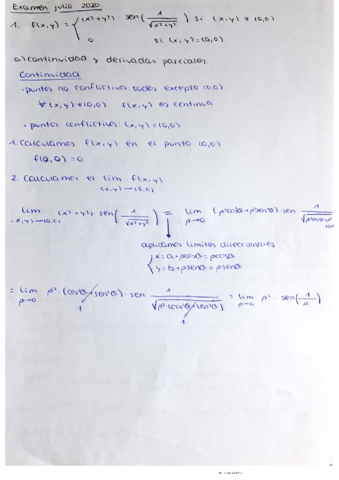 Examen julio 2020
1. f(x,y) = { (x²+y²) sen(1/√(x²+y²)) si (x,y) ≠ (0,0)
0 si (x,y) = (0,0)
a) continuidad y derivadas parciales.
Continuidad
- puntos no conflictivos: todos excepto (0,0)
∀(x,y) ≠ (0,0) f(x,y) es continua
- puntos conflictivos: (x,y) = (0,0)
1. Calculamos f(x,y) en el punto (0,0)
f(0,0) = 0
2. Calculamos el lim f(x,y)
(x,y)→(0,0)
lim (x,y)→(0,0) (x²+y²) · sen(1/√(x²+y²)) = lim ρ→0 (ρ²cos²θ + ρ²sen²θ) · sen 1
aplicamos límites direccionales
{ x = a + ρcosθ = ρcosθ
y = b + ρsenθ = ρsenθ
= lim ρ→0 ρ² · (cos²θ + sen²θ) · sen 1/√(ρ²(cos²θ + sen²θ)) = lim ρ→0 ρ² · sen(1/ρ)
1 1